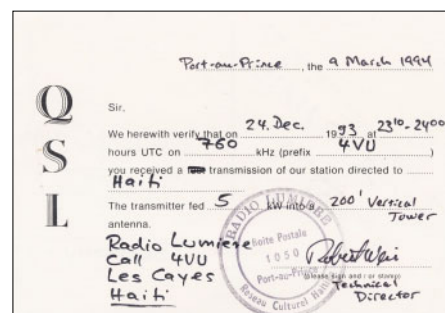 Port-au-Prince, the 9 March 1994
QSL
Sir,
We herewith verify that on 24. Dec. 1993 at 23¹⁰-24⁰⁰
hours UTC on 760 kHz (prefix 4VU
you received a transmission of our station directed to
Haiti
The transmitter fed 5 kW into a 200' Vertical
Tower
antenna.
Radio Lumière
Call 4VU
Les Cayes
Haiti
RADIO LUMIERE
Boite Postale
1050
Port-au-Prince
Reseau Culturel Haiti
(please sign and / or stamp)
Technical
Director